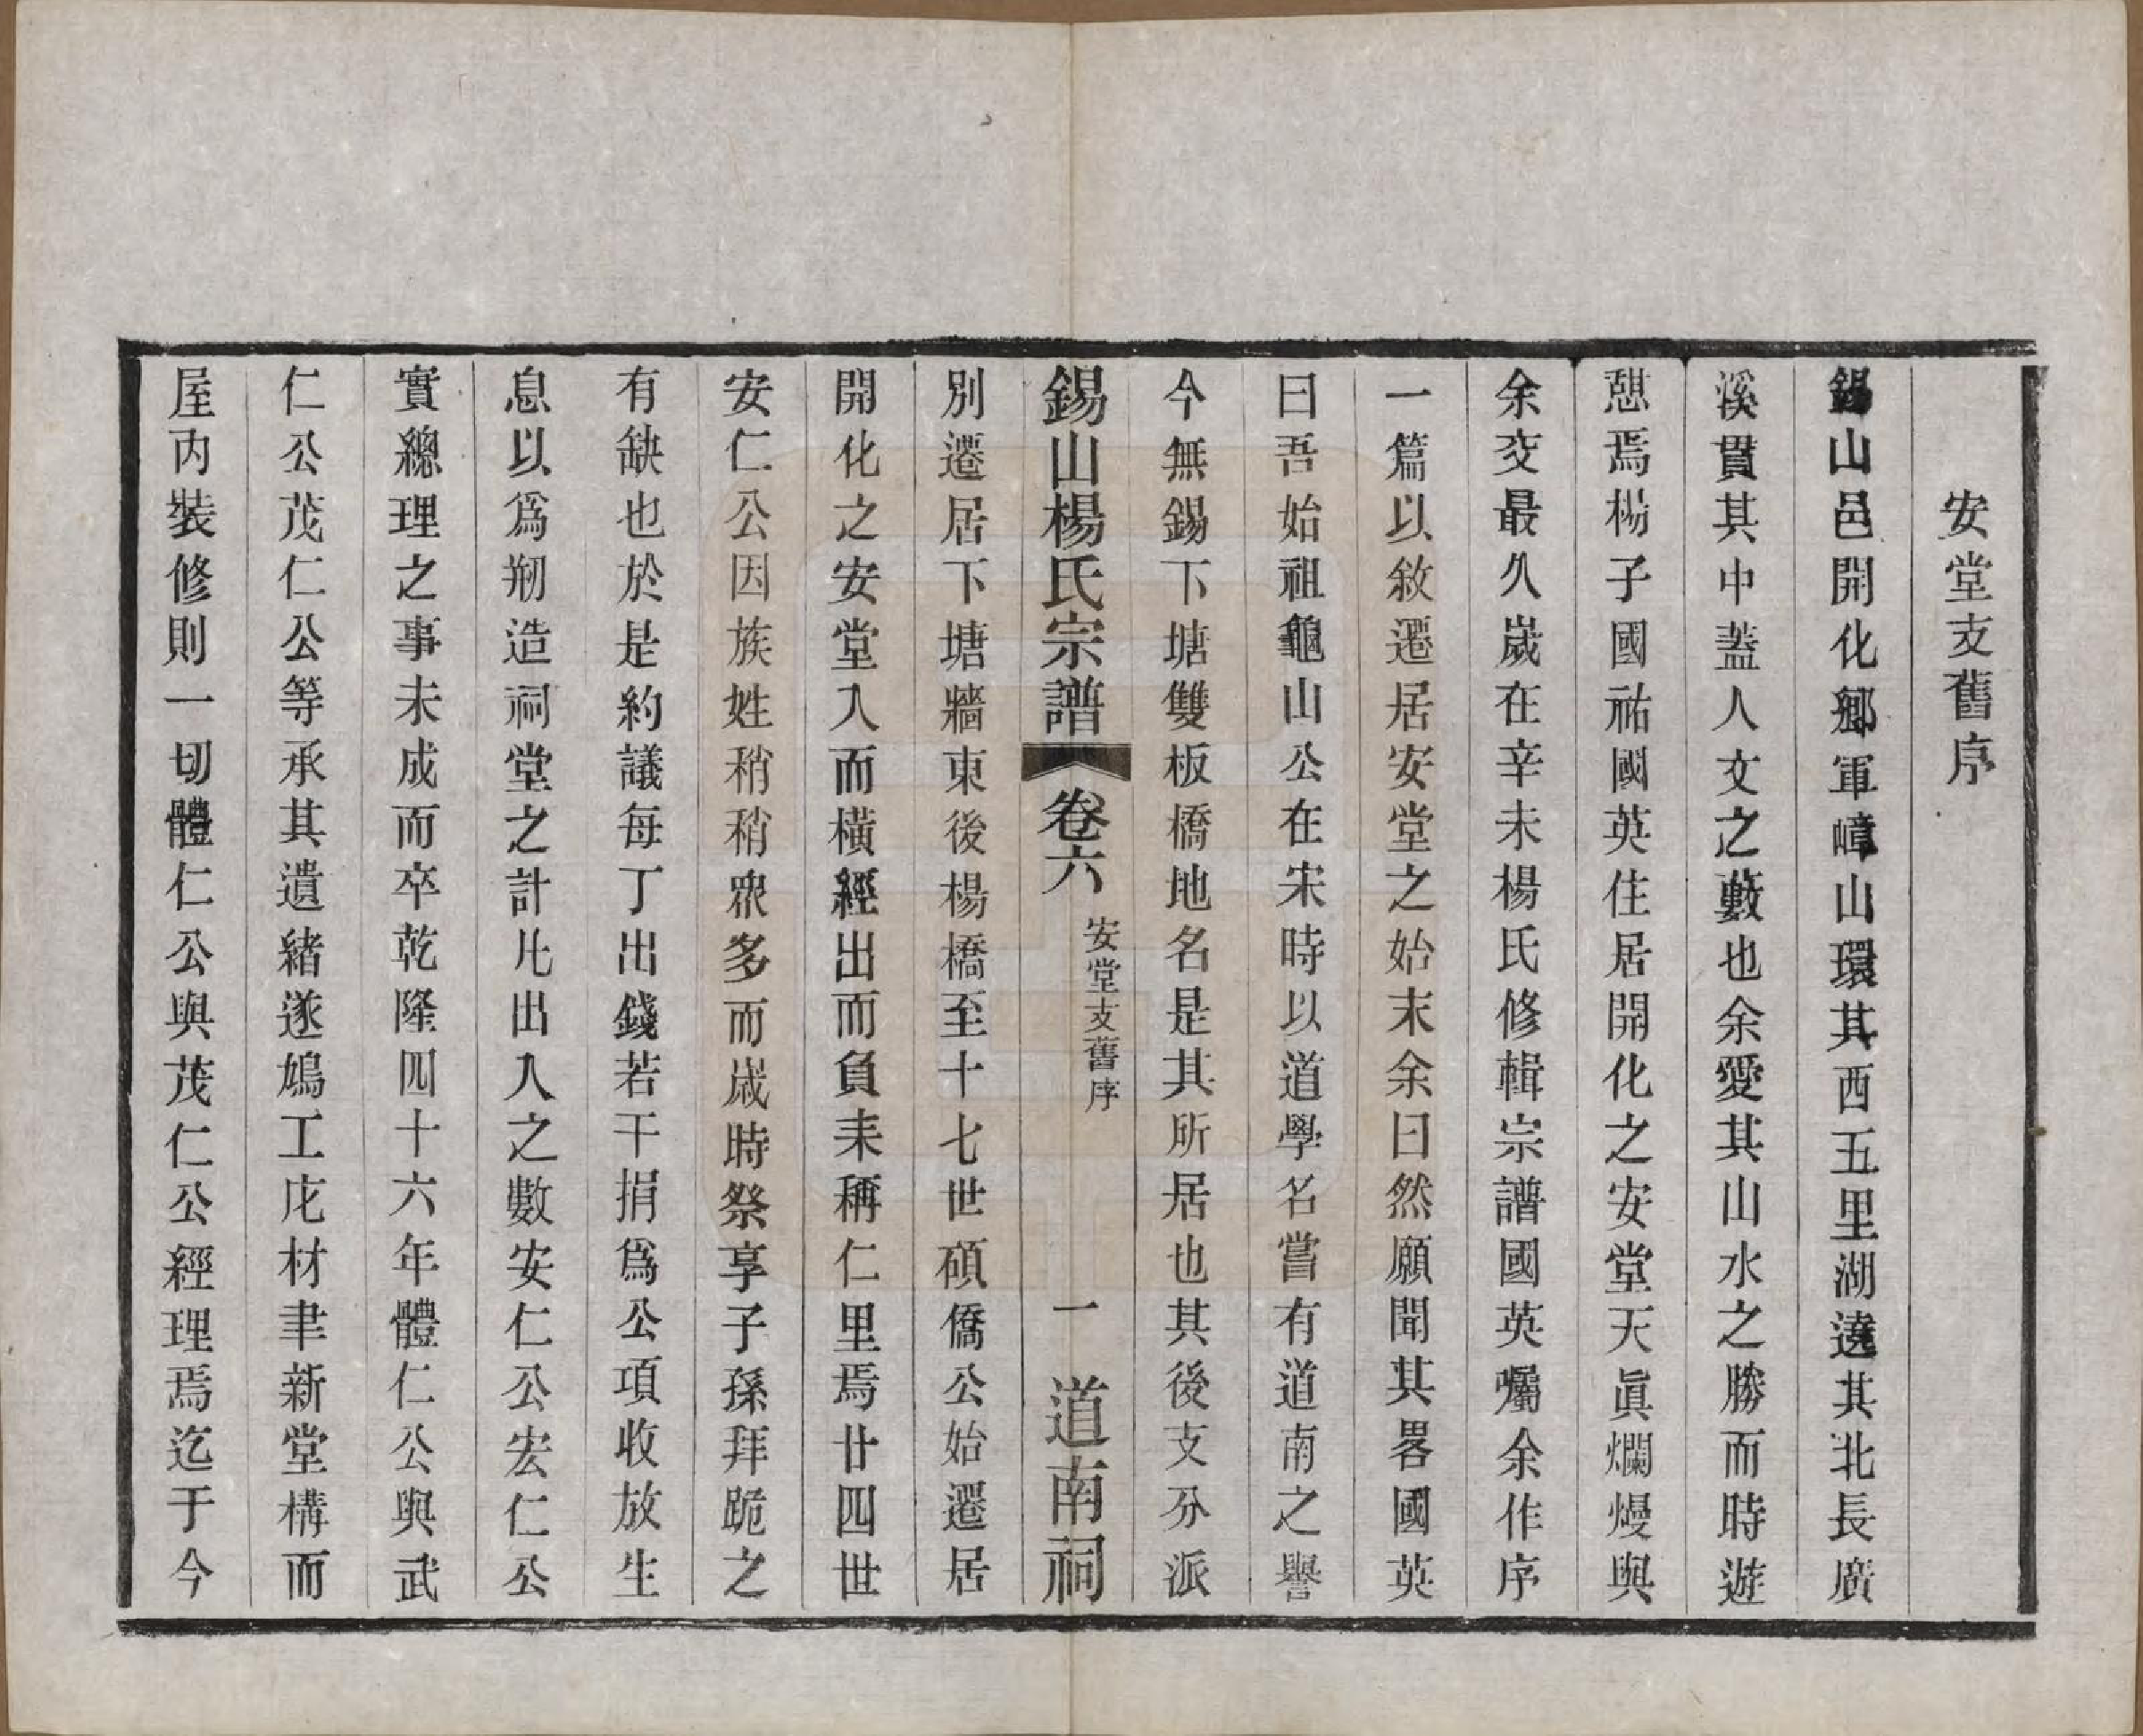 安堂支舊序
錫山邑開化鄉軍嶂山環其西五里湖遶其北長廣
溪貫其中蓋人文之藪也余愛其山水之勝而時遊
憇焉楊子國祐國英住居開化之安堂天眞爛熳與
余交最久嵗在辛未楊氏修輯宗譜國英囑余作序
一篇以敘遷居安堂之始末余曰然願聞其畧國英
曰吾始祖龜山公在宋時以道學名嘗有道南之譽
今無錫下塘雙板橋地名是其所居也其後支分派
錫山楊氏宗譜 卷六 安堂支舊序 一 道南祠
別遷居下塘牆東後楊橋至十七世碩僑公始遷居
開化之安堂入而橫經出而負耒稱仁里焉廿四世
安仁公因族姓稍稍眾多而歲時祭享子孫拜跪之
有缺也於是約議每丁出錢若干捐爲公項收放生
息以爲剏造祠堂之計凡出入之數安仁公宏仁公
實總理之事未成而卒乾隆四十六年體仁公與武
仁公茂仁公等承其遺緒遂鳩工庀材聿新堂構而
屋內裝修則一切體仁公與茂仁公經理焉迄于今